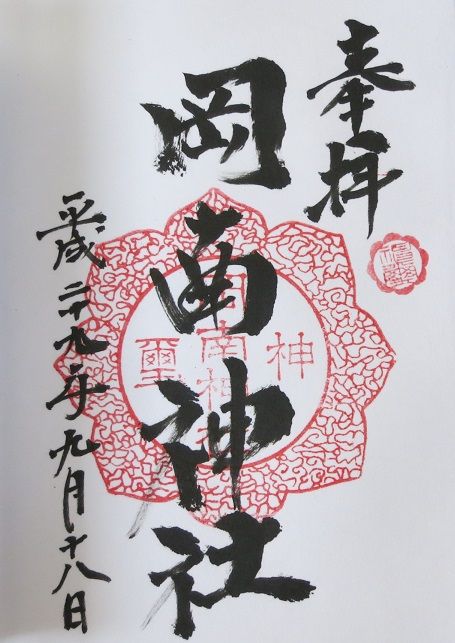 奉拝
岡南神社
神璽
平成二十九年九月十八日